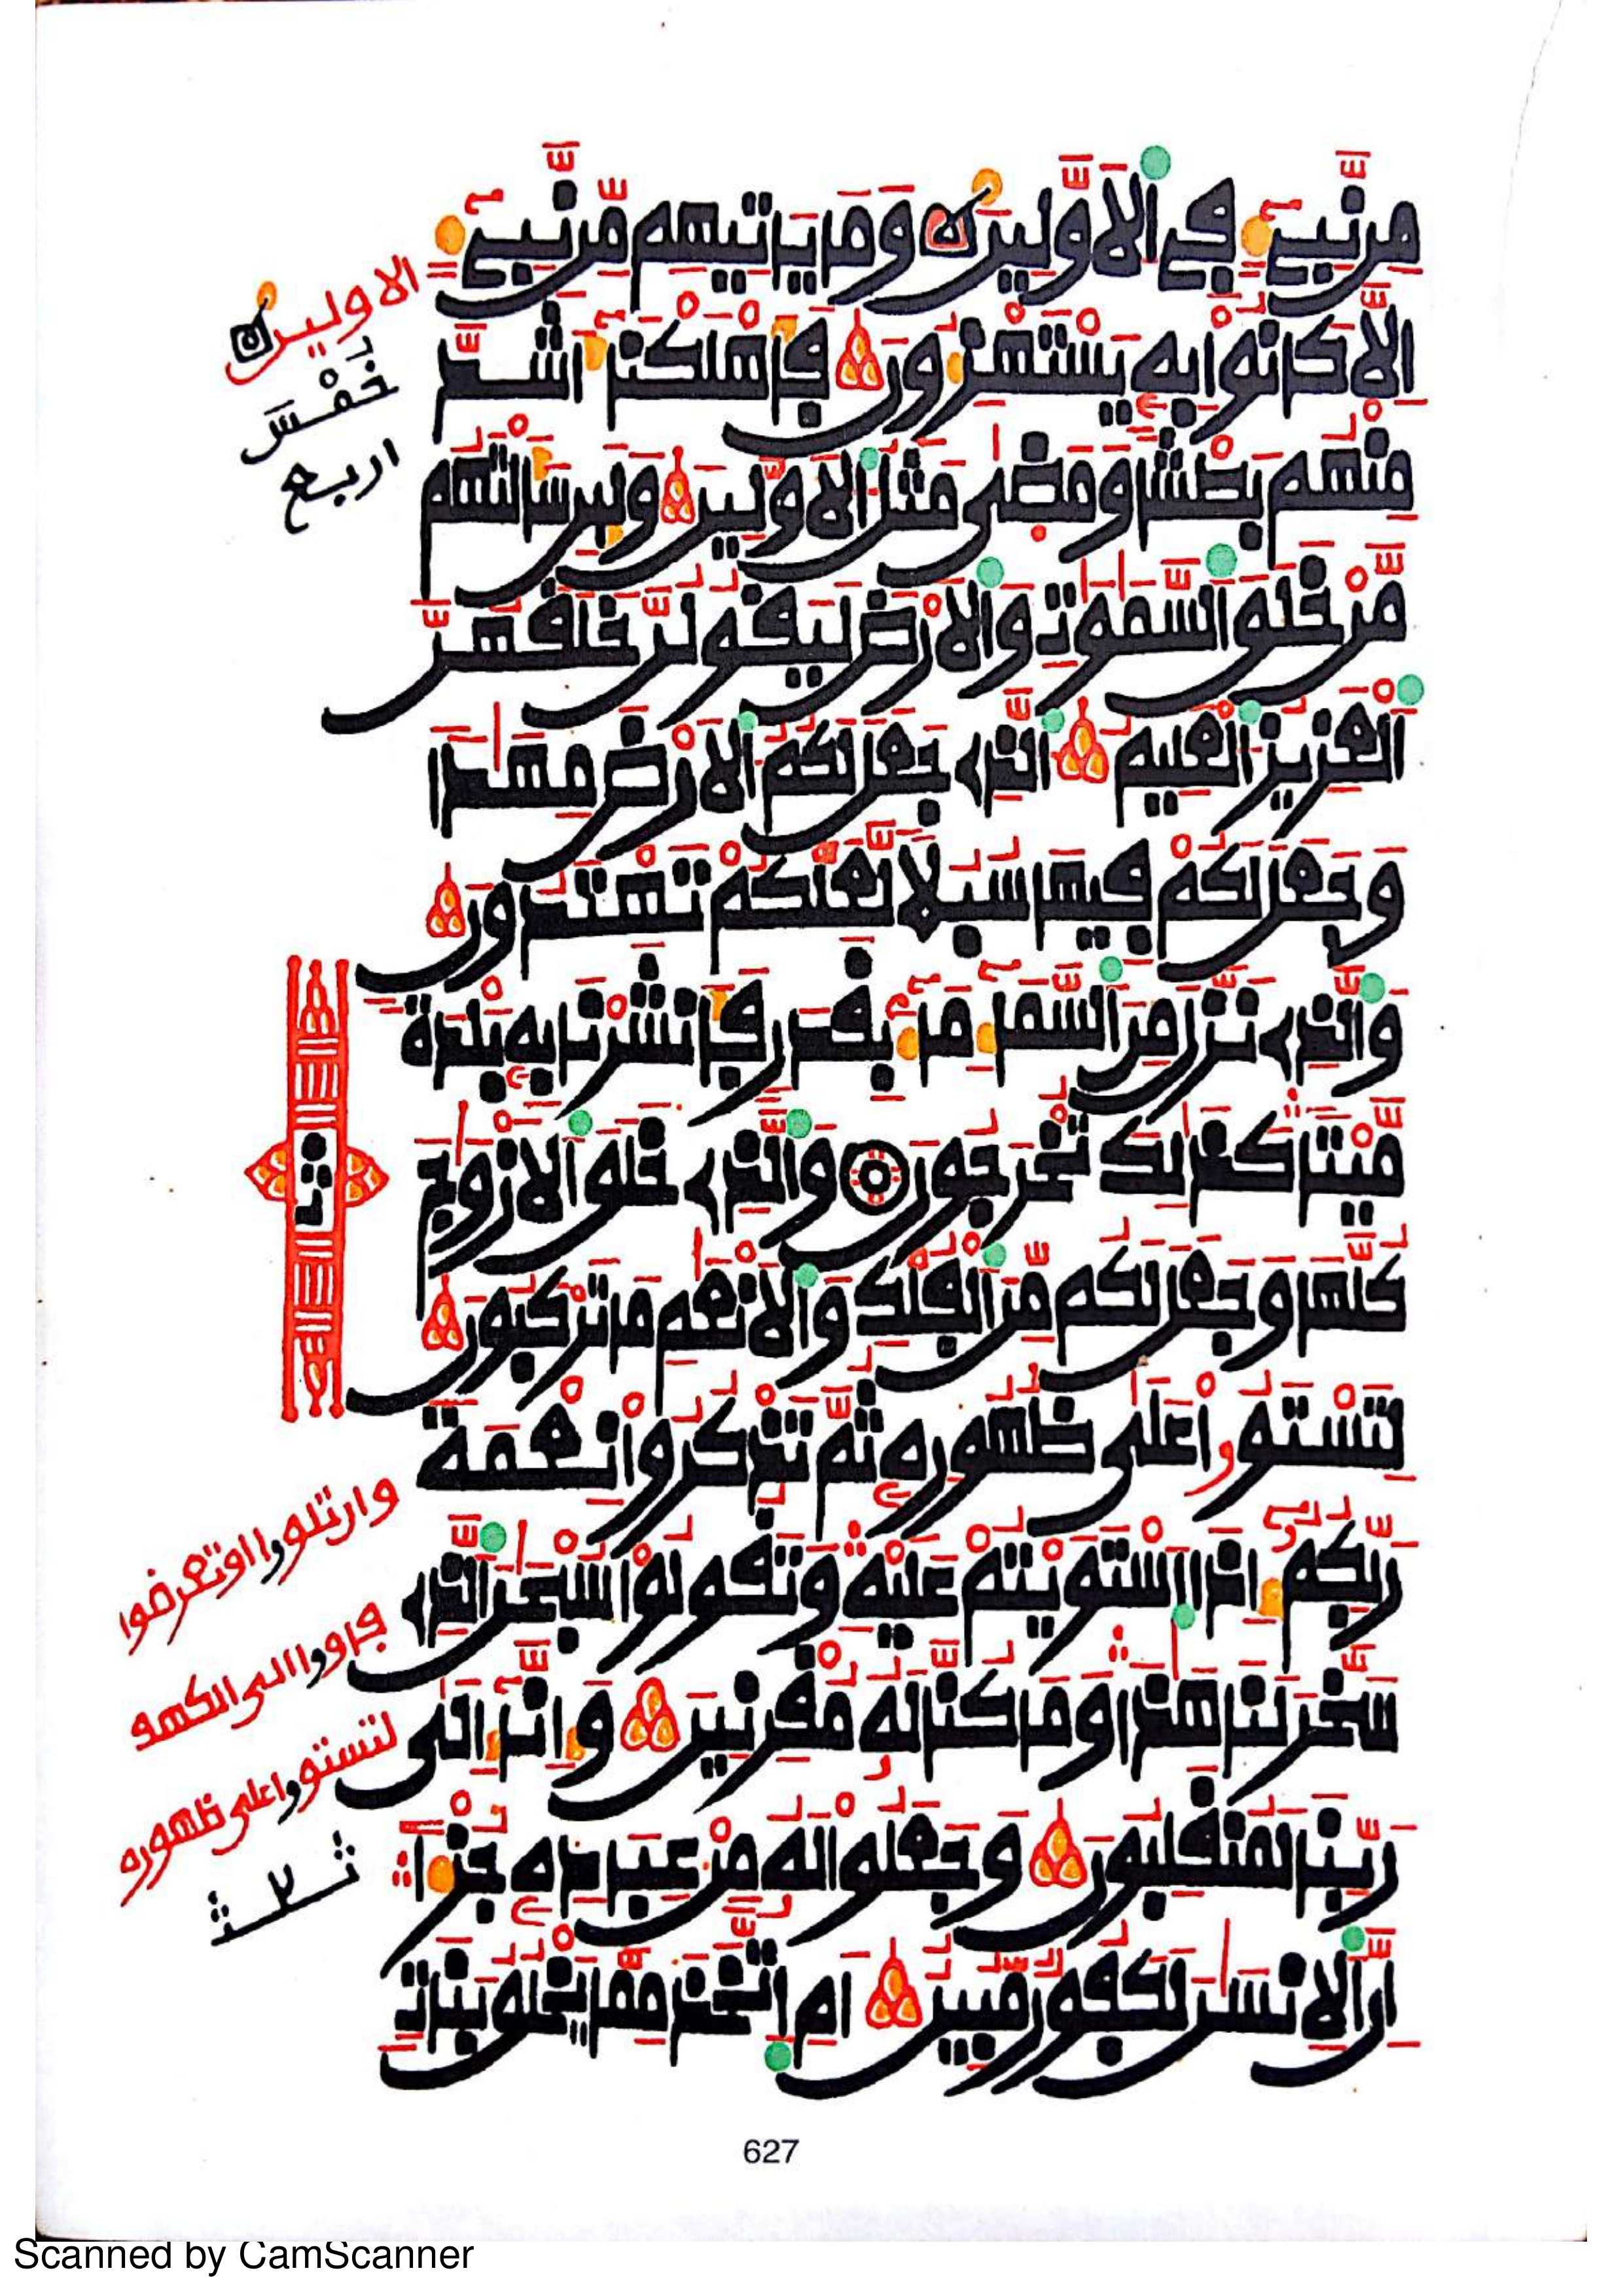 مِن نَّبِيٍّ فِي الْأَوَّلِينَ وَمَا يَأْتِيهِم مِّن نَّبِيٍّ
إِلَّا كَانُوا بِهِ يَسْتَهْزِءُونَ فَأَهْلَكْنَا أَشَدَّ
مِنْهُم بَطْشًا وَمَضَى مَثَلُ الْأَوَّلِينَ وَلَئِن سَأَلْتَهُم
مَّنْ خَلَقَ السَّمَوَتِ وَالْأَرْضَ لَيَقُولُنَّ خَلَقَهُنَّ
الْعَزِيزُ الْعَلِيمُ الَّذِي جَعَلَ لَكُمُ الْأَرْضَ مِهَدًا
وَجَعَلَ لَكُمْ فِيهَا سُبُلًا لَّعَلَّكُمْ تَهْتَدُونَ
وَالَّذِي نَزَّلَ مِنَ السَّمَاءِ مَاءً بِقَدَرٍ فَأَنشَرْنَا بِهِ بَلْدَةً
مَّيْتًا كَذَلِكَ تُخْرَجُونَ وَالَّذِي خَلَقَ الْأَزْوَجَ
كُلَّهَا وَجَعَلَ لَكُم مِّنَ الْفُلْكِ وَالْأَنْعَمِ مَا تَرْكَبُونَ
لِتَسْتَوُوا عَلَى ظُهُورِهِ ثُمَّ تَذْكُرُوا نِعْمَةَ
رَبِّكُمُ إِذَا اسْتَوَيْتُمْ عَلَيْهِ وَتَقُولُوا سُبْحَنَ الَّذِي
سَخَّرَ لَنَا هَذَا وَمَا كُنَّا لَهُ مُقْرِنِينَ وَإِنَّا إِلَى
رَبِّنَا لَمُنقَلِبُونَ وَجَعَلُوا لَهُ مِنْ عِبَادِهِ جُزْءًا
إِنَّ الْإِنسَنَ لَكَفُورٌ مُّبِينٌ أَمِ اتَّخَذَ مِمَّا يَخْلُقُ بَنَاتٍ
الاولين
خَمْسَ
اربع
ثمن
وان تلووا او تعرضوا
فاووا الى الكهف
لتستووا على ظهوره
ثلث
627
Scanned by CamScanner